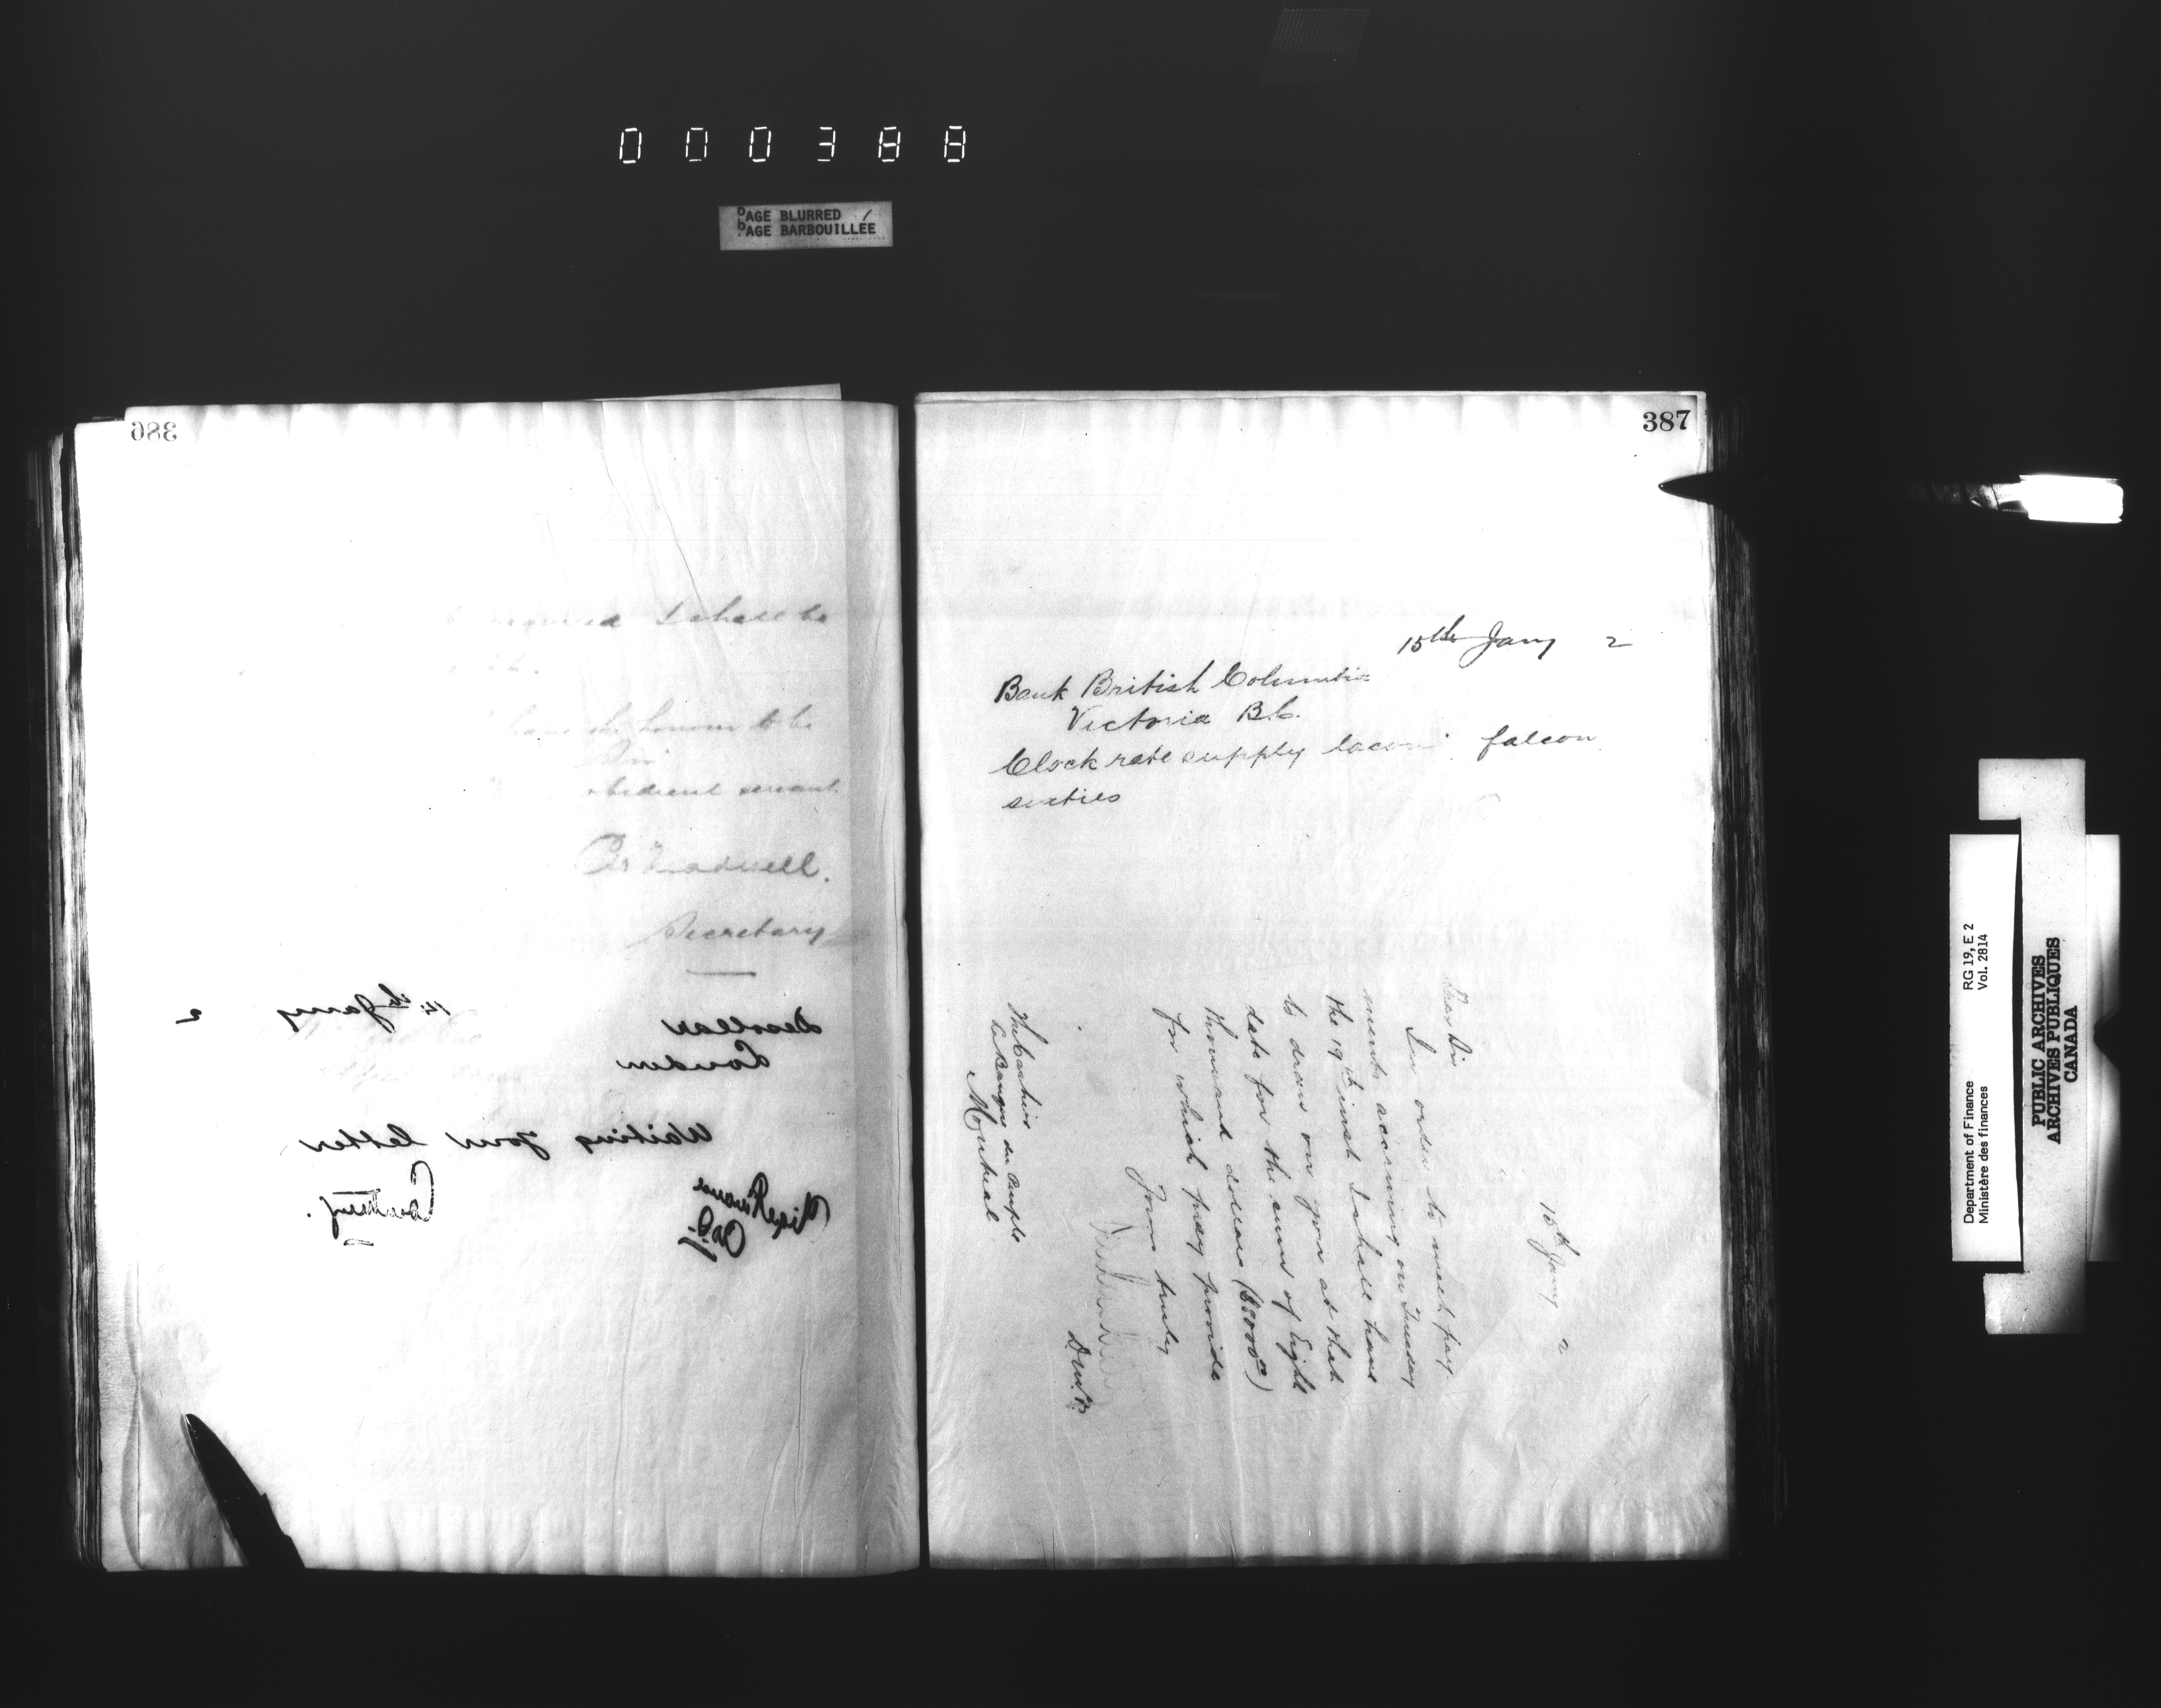 000388
PAGE BLURRED
PAGE BARBOUILLÉE
386
required I shall be
have the honour to be
Sir
obedient servant
Secretary
14th Jany 2
London
Waiting your letter
Courtney.
387
15th Jany 2
Bank British Columbia
Victoria B.C.
Clock rate supply falcon
sixties
15th Jany 2
Dear Sir
In order to meet pay
ments accruing on Tuesday
the 19th inst I shall have
to draw on you at that
date for the sum of Eight
thousand dollars ($8000.00)
for which pray provide
Yours truly
The Cashier
La Banque du Peuple
Montreal
Department of Finance RG 19, E 2
Ministère des finances Vol. 2814
PUBLIC ARCHIVES
ARCHIVES PUBLIQUES
CANADA